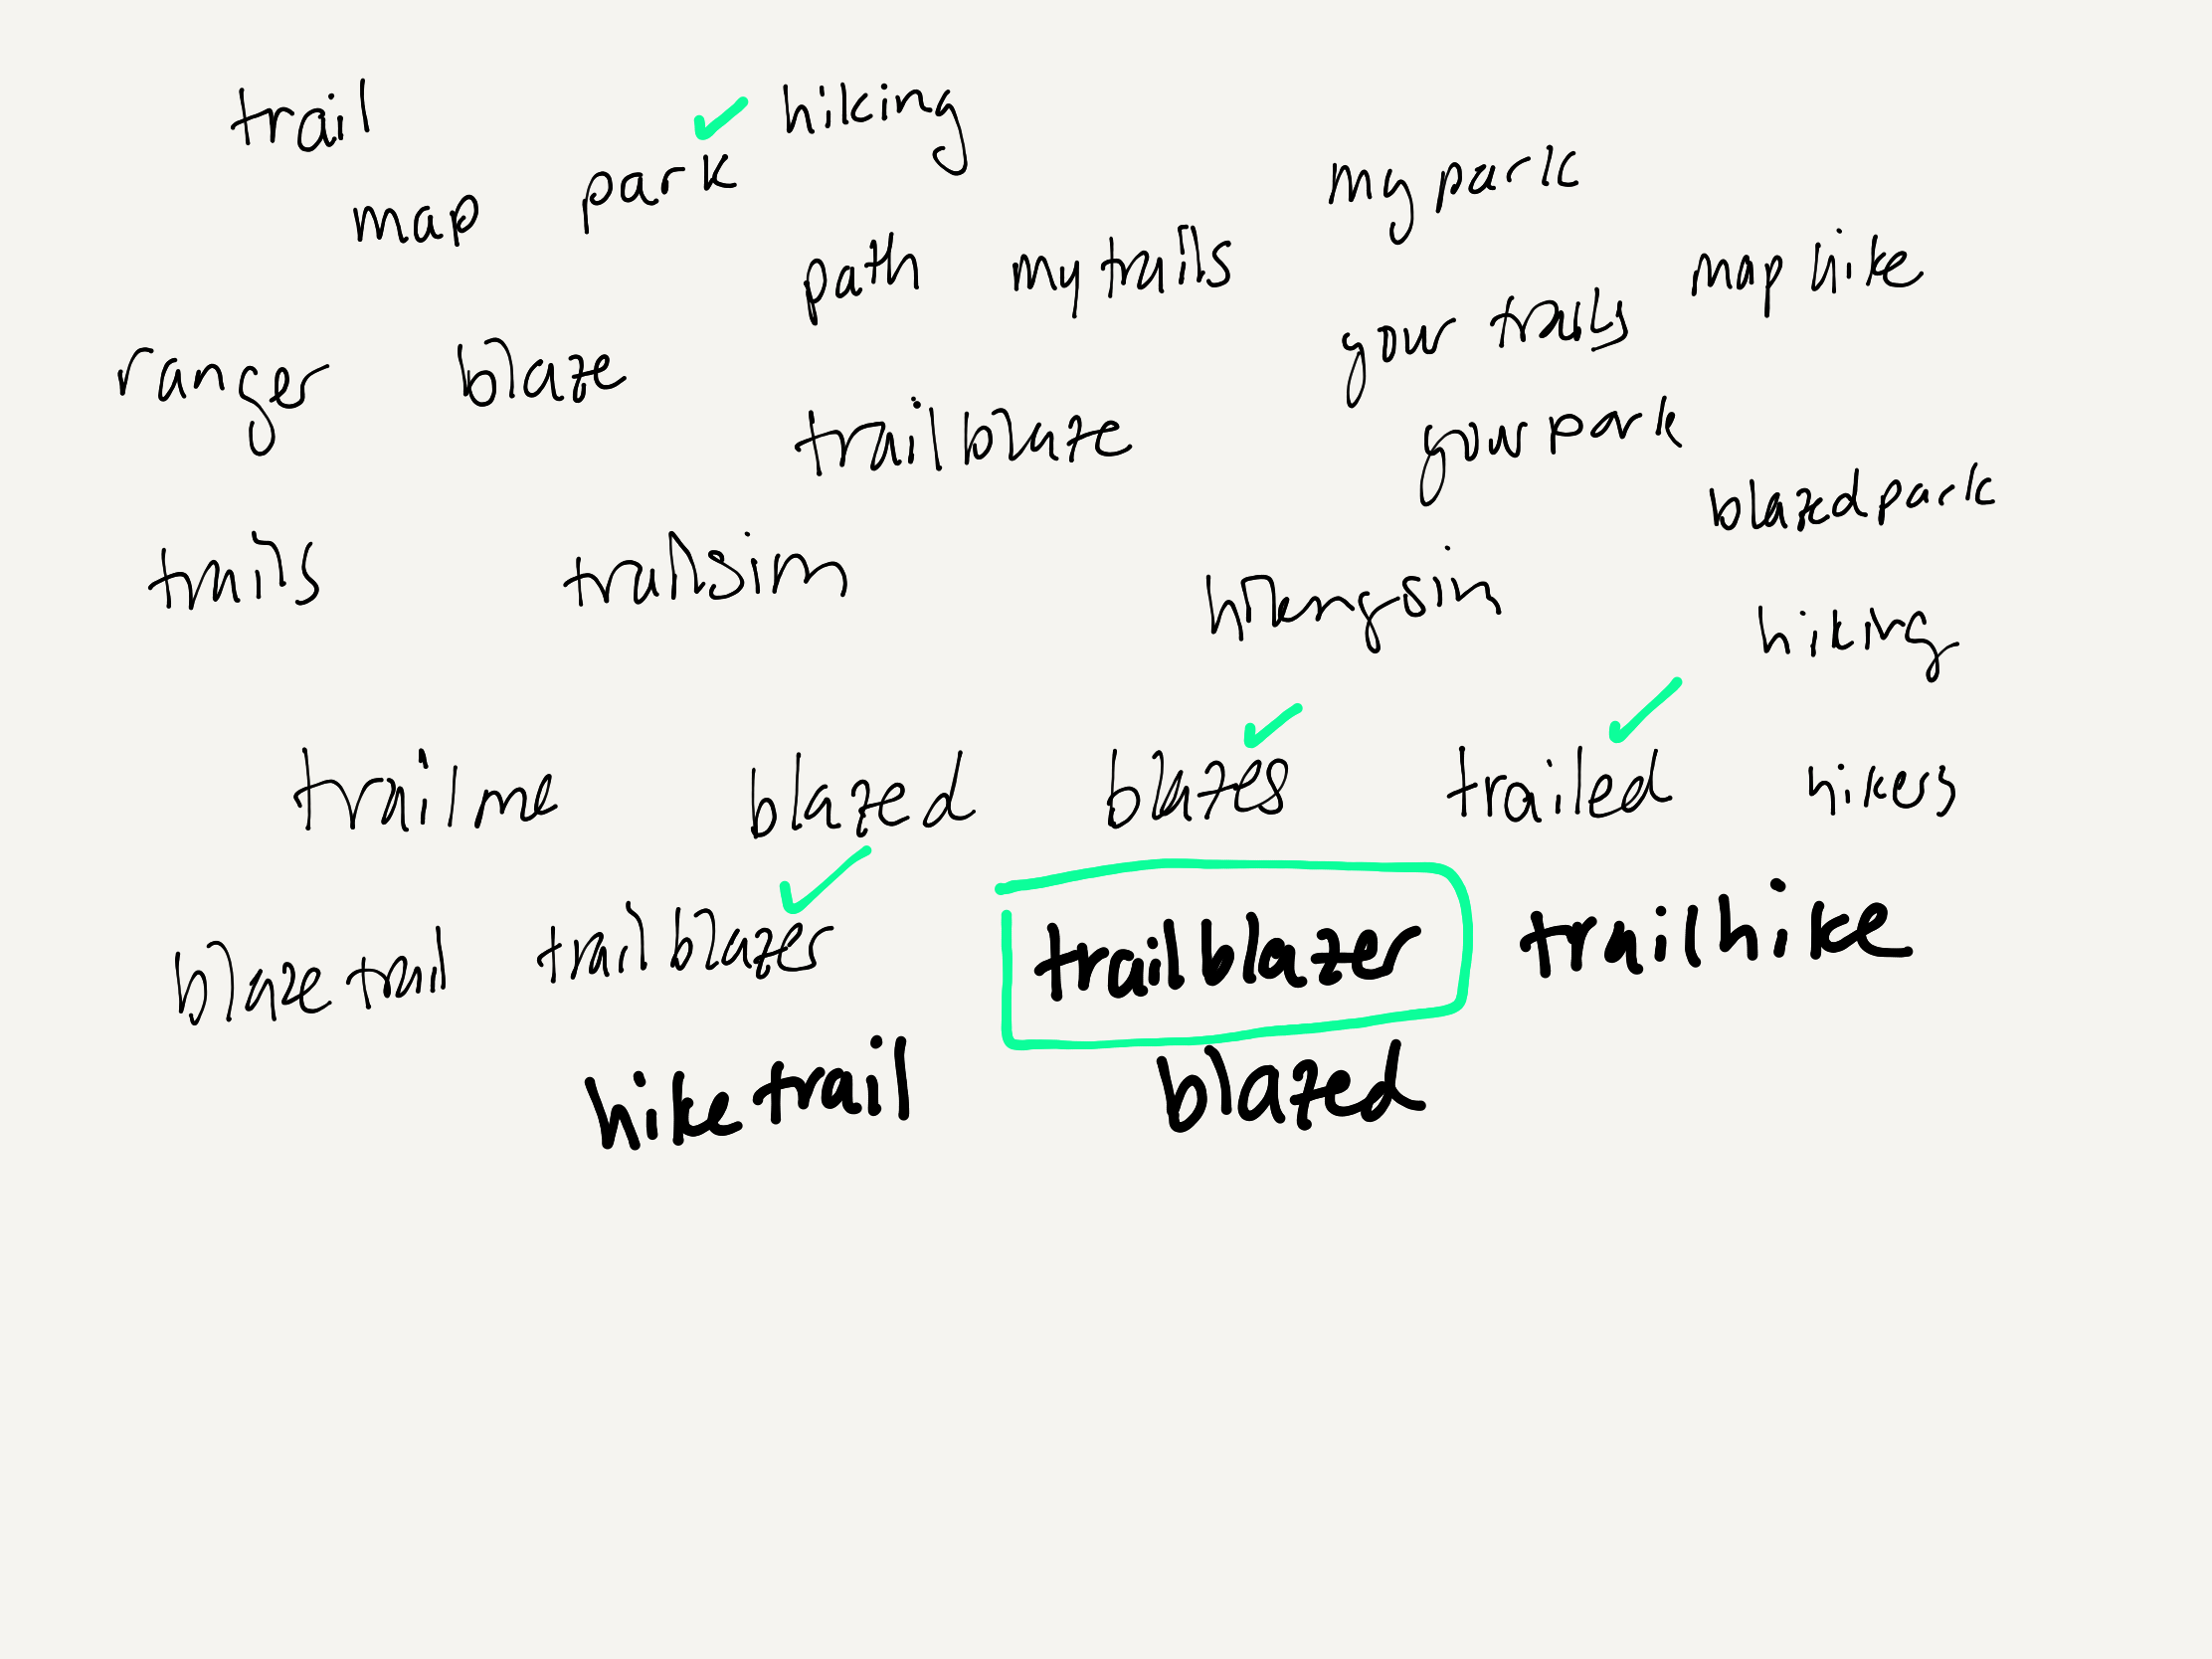 trail
hiking
map
park
my park
path
mytrails
map hike
your trails
ranger
blaze
trailblaze
yourpark
blazedpark
trails
trailsim
hikingsim
hiking
trailme
blazed
blazes
trailed
hikers
blazetrail
trailblazer
trailblazer
trailhike
hiketrail
blazed